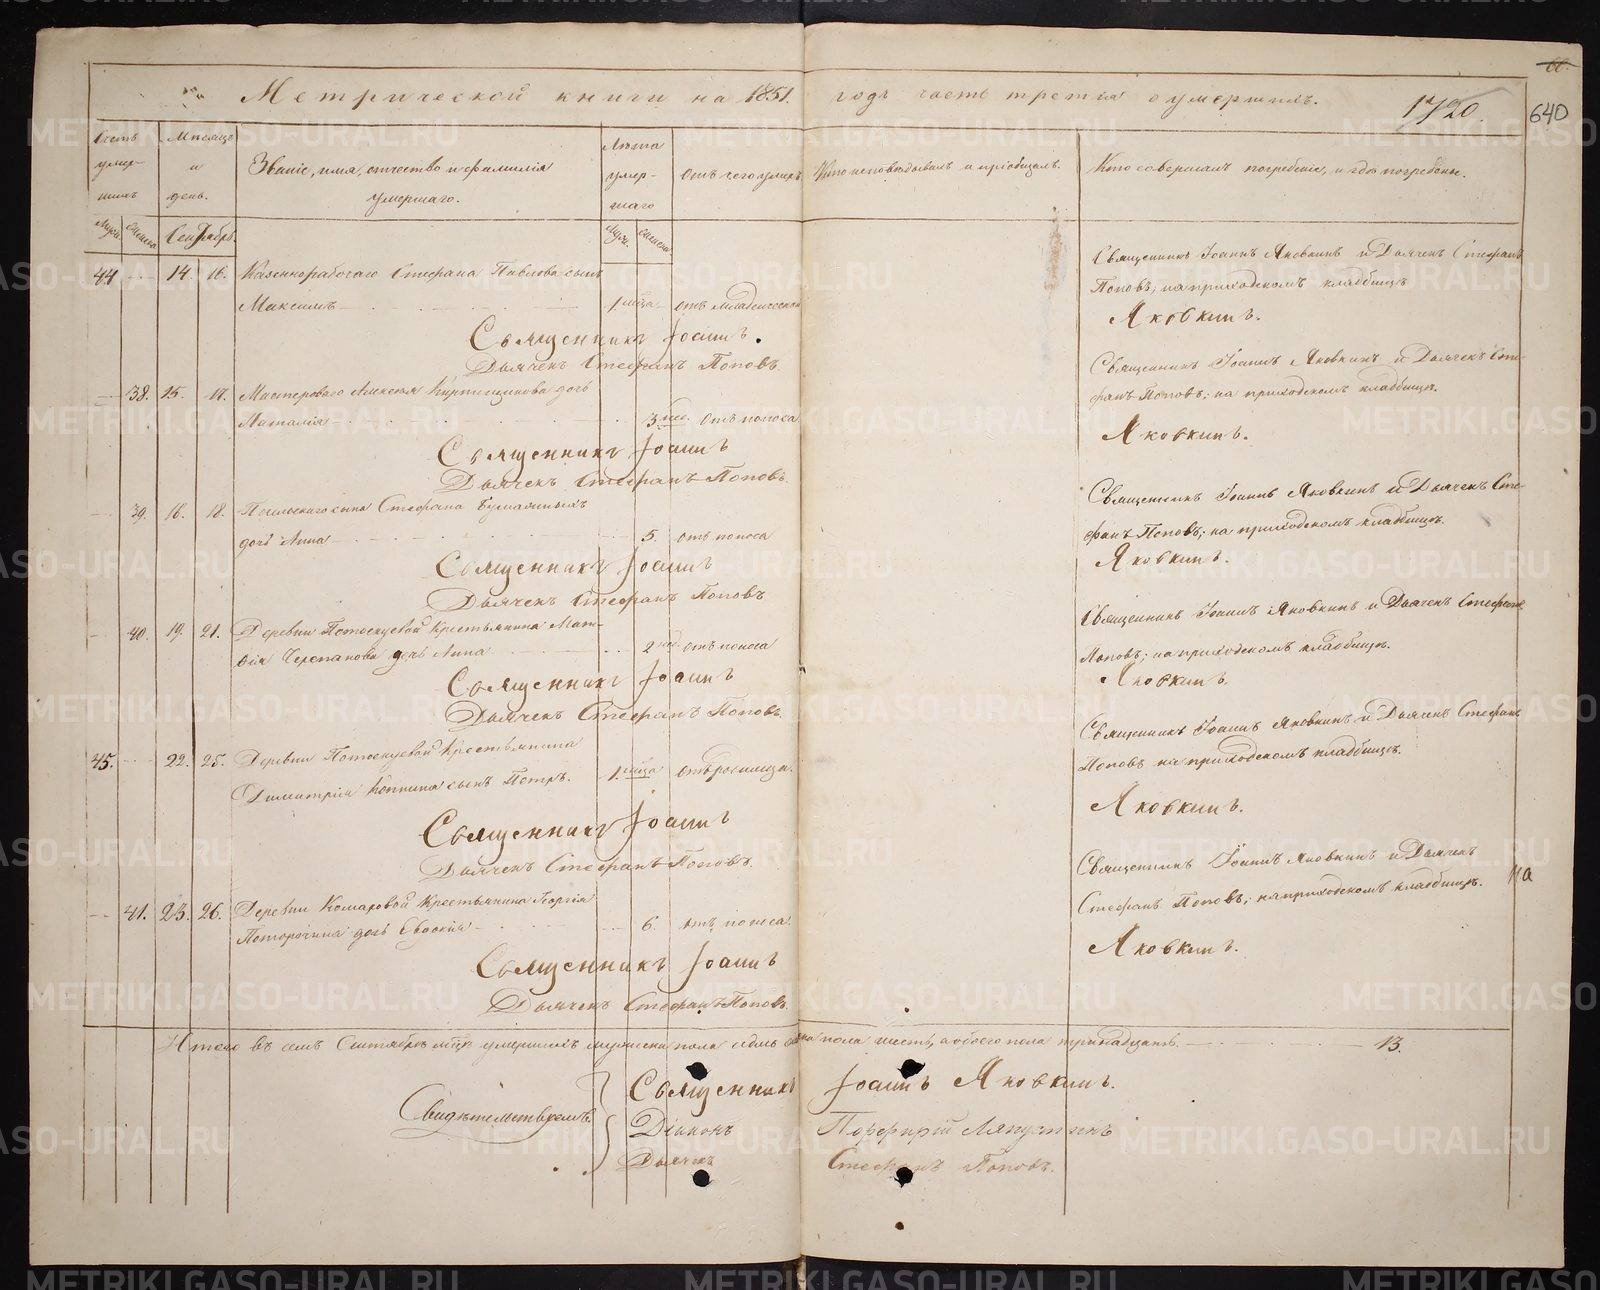 Метрической книги на 1851. годъ часть третія о умершихъ.
1720.
66.
640
Счетъ умершихъ
Мѣсяцъ и день.
Званіе, имя, отчество и фамилія умершаго.
Лѣта умершаго
Отъ чего умеръ
Кто исповѣдывалъ и пріобщалъ.
Кто совершалъ погребеніе, и гдѣ погребены.
Муж. Женска
Сентябрь.
Муж. Женска
44 14. 16. Казеннорабочаго Стефана Павлова сынъ
Максимъ 1. мца отъ младенческой
Священникъ Іоаннъ.
Дьячекъ Стефанъ Поповъ
Священникъ Іоаннъ Яковкинъ и Дьячекъ Стефанъ
Поповъ; на приходскомъ кладбищѣ
Яковкинъ.
38. 15. 17. Мастероваго Алексѣя Кирпищикова дочь
Наталія 3 нед. отъ поноса
Священникъ Іоаннъ
Дьячекъ Стефанъ Поповъ.
Священникъ Іоаннъ Яковкинъ и Дьячекъ Сте-
фанъ Поповъ; на приходскомъ кладбищѣ.
Яковкинъ.
39. 16. 18. сына Стефана
дочь Анна 5. отъ поноса
Священникъ Іоаннъ
Дьячекъ Стефанъ Поповъ
Священникъ Іоаннъ Яковкинъ и Дьячекъ Сте-
фанъ Поповъ; на приходскомъ кладбищѣ.
Яковкинъ.
40. 19. 21. Деревни Потоскуевой Крестьянина Мат-
ѳія Черепанова дочь Анна 2 нед. отъ поноса
Священникъ Іоаннъ
Дьячекъ Стефанъ Поповъ.
Священникъ Іоаннъ Яковкинъ и Дьячекъ Стефанъ
Поповъ; на приходскомъ кладбищѣ.
Яковкинъ.
45. 22. 25. Деревни Потоскуевой Крестьянина
Димитрія Копнина сынъ Петръ. 1. мца отъ родимца.
Священникъ Іоаннъ
Дьячекъ Стефанъ Поповъ.
Священникъ Іоаннъ Яковкинъ и Дьячекъ Стефанъ
Поповъ на приходскомъ кладбищѣ.
Яковкинъ.
41. 23. 26. Деревни Комаровой Крестьянина Георгія
Поторочина дочь Евдокія 6. отъ поноса.
Священникъ Іоаннъ
Дьячекъ Стефанъ Поповъ.
Священникъ Іоаннъ Яковкинъ и Дьячекъ
Стефанъ Поповъ; на приходскомъ кладбищѣ.
Яковкинъ.
на
Итого въ семъ Сентябрѣ мцѣ умершихъ мужеска пола седмь женска пола шесть, а обоего пола тринадцать. 13.
Свидѣтельствуемъ.
Священникъ Іоаннъ Яковкинъ.
Діаконъ Порфирій Ляпустинъ
Дьячекъ Стефанъ Поповъ.
METRIKI.GASO-URAL.RU